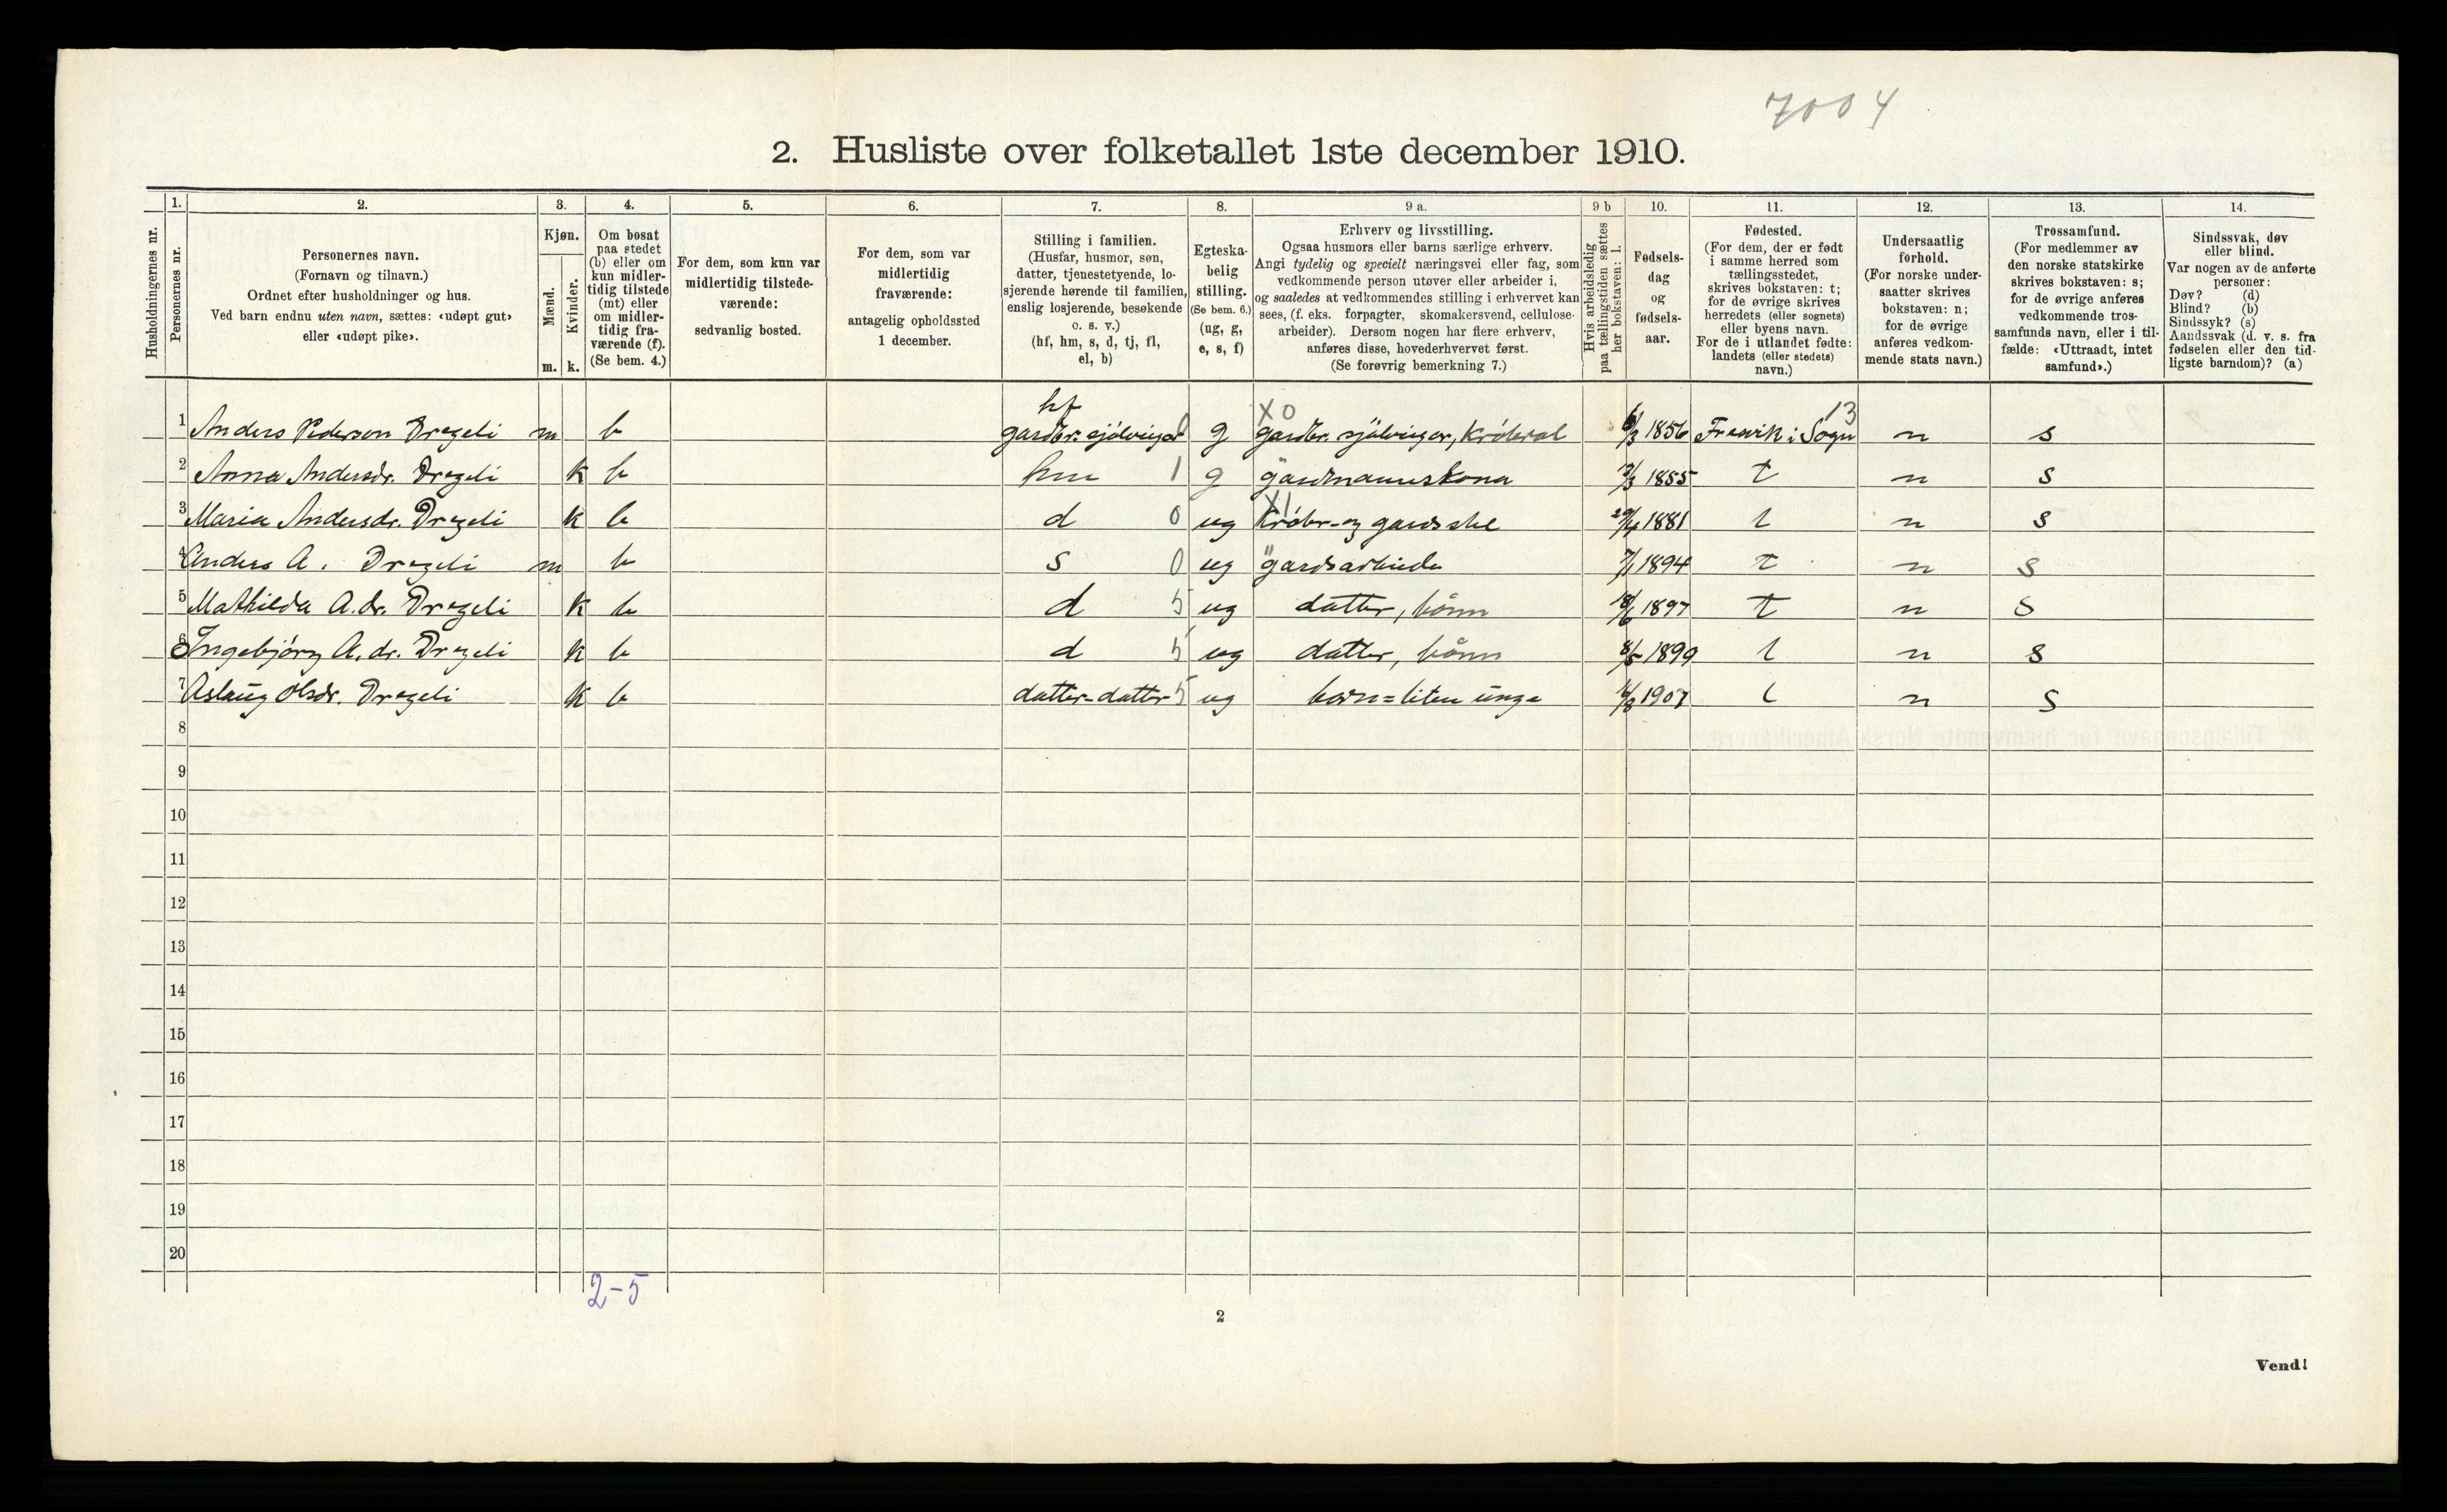 7004
2. Husliste over folketallet 1ste december 1910.
1. 2. 3. 4. 5. 6. 7. 8. 9 a. 9 b 10. 11. 12. 13. 14.
Husholdningernes nr.
Personernes nr.
Personernes navn.
(Fornavn og tilnavn.)
Ordnet efter husholdninger og hus.
Ved barn endnu uten navn, sættes: «udøpt gut»
eller «udøpt pike».
Kjøn.
Mænd.
Kvinder.
m. k.
Om bosat
paa stedet
(b) eller om
kun midler-
tidig tilstede
(mt) eller
om midler-
tidig fra-
værende (f).
(Se bem. 4.)
For dem, som kun var
midlertidig tilstede-
værende:
sedvanlig bosted.
For dem, som var
midlertidig
fraværende:
antagelig opholdssted
1 december.
Stilling i familien.
(Husfar, husmor, søn,
datter, tjenestetyende, lo-
sjerende hørende til familien,
enslig losjerende, besøkende
o. s. v.)
(hf, hm, s, d, tj, fl,
el, b)
Egteska-
belig
stilling.
(Se bem. 6.)
(ug, g,
e, s, f)
Erhverv og livsstilling.
Ogsaa husmors eller barns særlige erhverv.
Angi tydelig og specielt næringsvei eller fag, som
vedkommende person utøver eller arbeider i,
og saaledes at vedkommendes stilling i erhvervet kan
sees, (f. eks. forpagter, skomakersvend, cellulose-
arbeider). Dersom nogen har flere erhverv,
anføres disse, hovederhvervet først.
(Se forøvrig bemerkning 7.)
Hvis arbeidsledig
paa tællingstiden sættes
her bokstaven: l.
Fødsels-
dag
og
fødsels-
aar.
Fødested.
(For dem, der er født
i samme herred som
tællingsstedet,
skrives bokstaven: t;
for de øvrige skrives
herredets (eller sognets)
eller byens navn.
For de i utlandet fødte:
landets (eller stedets)
navn.)
Undersaatlig
forhold.
(For norske under-
saatter skrives
bokstaven: n;
for de øvrige
anføres vedkom-
mende stats navn.)
Trossamfund.
(For medlemmer av
den norske statskirke
skrives bokstaven: s;
for de øvrige anføres
vedkommende tros-
samfunds navn, eller i til-
fælde: «Uttraadt, intet
samfund».)
Sindssvak, døv
eller blind.
Var nogen av de anførte
personer:
Døv? (d)
Blind? (b)
Sindssyk? (s)
Aandssvak (d. v. s. fra
fødselen eller den tid-
ligste barndom)? (a)
hf X0 13
1 Anders Pederson Dregeli m b gardbr. sjölveigar 0 g gardbr. sjölveigar, 1856 i Sogn n s
2 Anna Andersdr. Dregeli k b hm 1 g gardmannskona 1855 t n s
3 Maria Andersdr. Dregeli k b d 0 ug X1 29/4 1881 t n s
4 Anders A. Dregeli m b s 0 ug " 7/1 1894 t n s
5 Mathilda A.dr. Dregeli k b d 5 ug datter, 18/6 1897 t n s
6 Ingebjörg A.dr. Dregeli k b d 5 ug datter, 8/5 1899 t n s
7 Aslaug Olsdr. Dregeli k b datter-datter 5 ug barn = liten unge 1907 t n s
8
9
10
11
12
13
14
15
16
17
18
19
20
2-5
2
Vend!